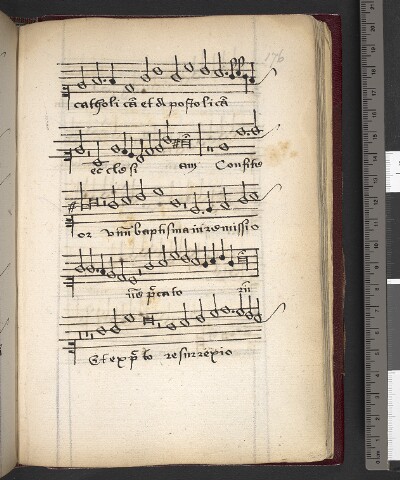 176
catholicā et apostolicā
ecclesi am Confite
or vnū baptisma in remissio
nē pc̄cato rū
Et expc̄to resurrexio